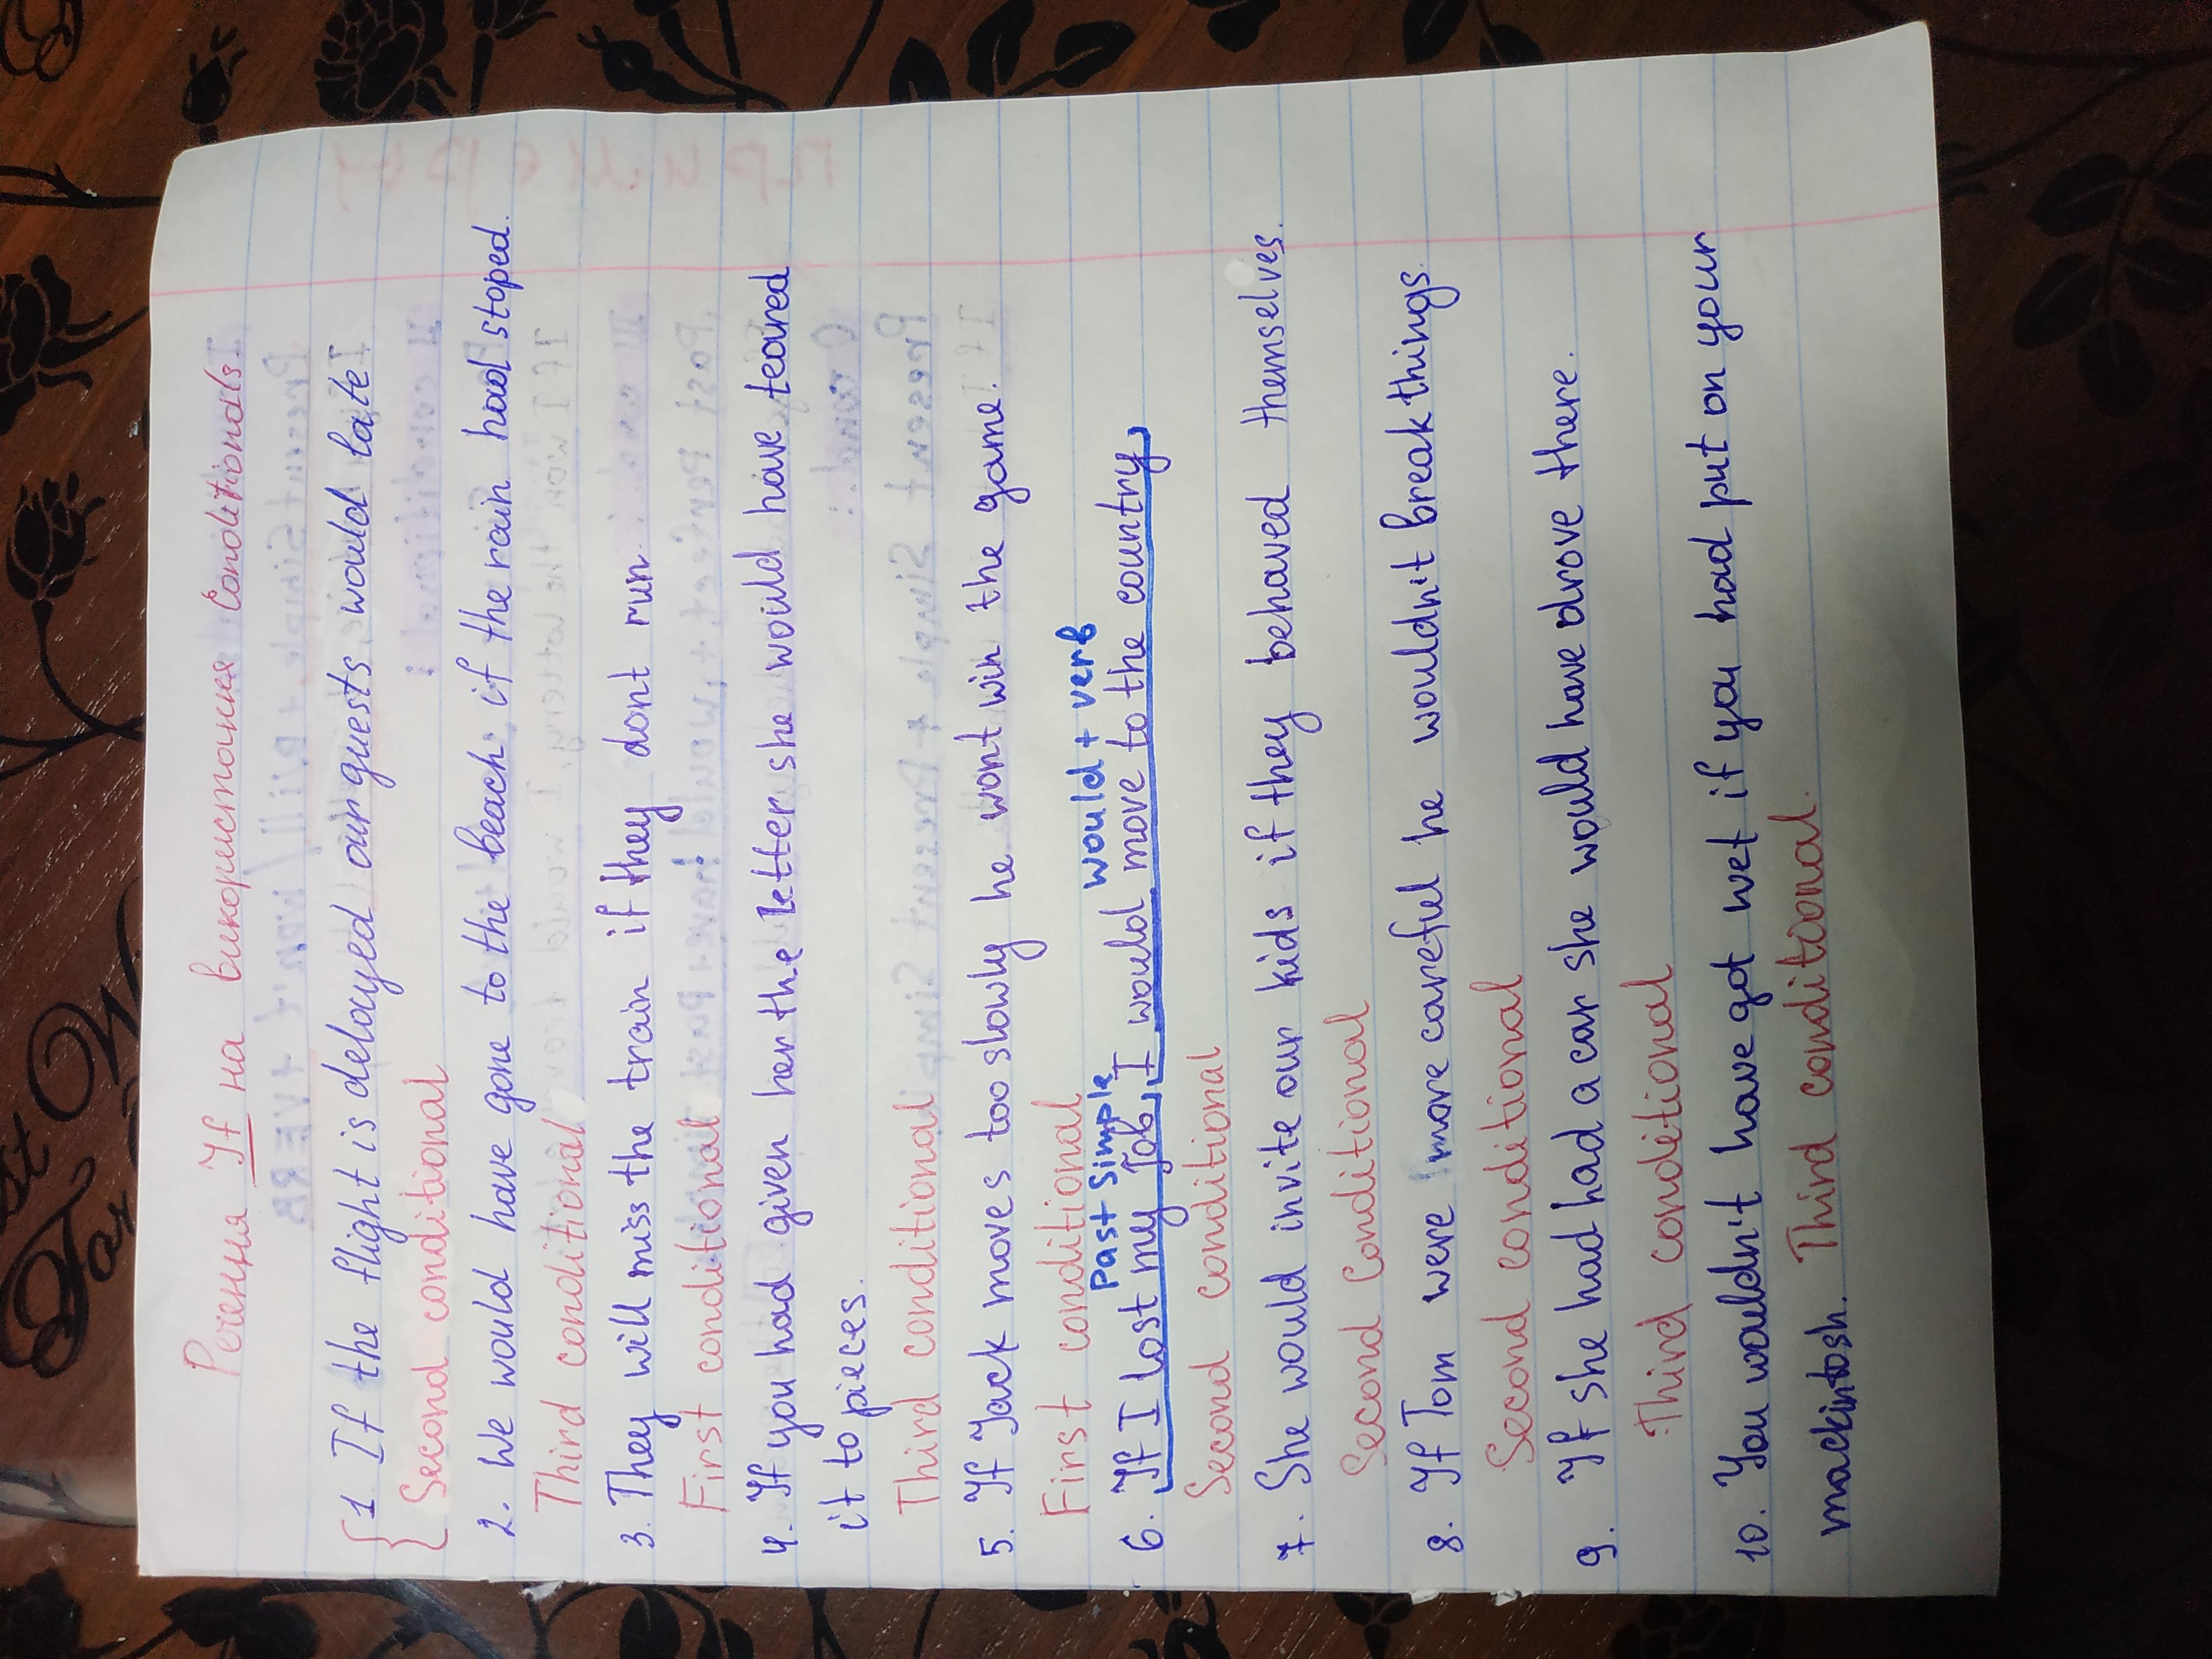 Речення If на використання Conditionals
1. If the flight is delayed our guests would late
Second conditional
2. We would have gone to the beach if the rain had stoped.
Third conditional
3. They will miss the train if they dont run.
First conditional
4. If you had given her the letter she would have teared
it to pieces.
Third conditional
5. If Jack moves too slowly he wont win the game.
First conditional
Past Simple would + verb
6. If I lost my job, I would move to the country
Second conditional
7. She would invite our kids if they behaved themselves.
Second Conditional
8. If Tom were more careful he wouldn't break things.
Second conditional
9. If she had had a car she would have drove there.
Third conditional
10. You wouldn't have got wet if you had put on your
mackintosh. Third conditional.